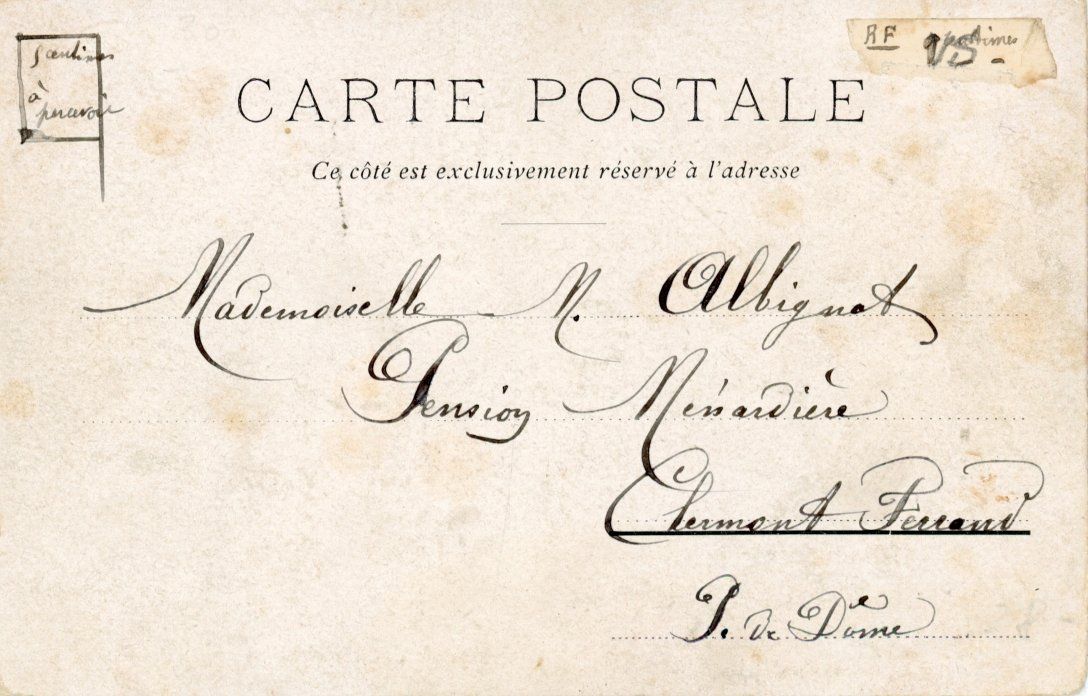 5 centimes
à
percevoir
RF
centimes
CARTE POSTALE
Ce côté est exclusivement réservé à l'adresse
Mademoiselle M. Albignat
Pension Ménardière
Clermont Ferrand
P. de Dôme